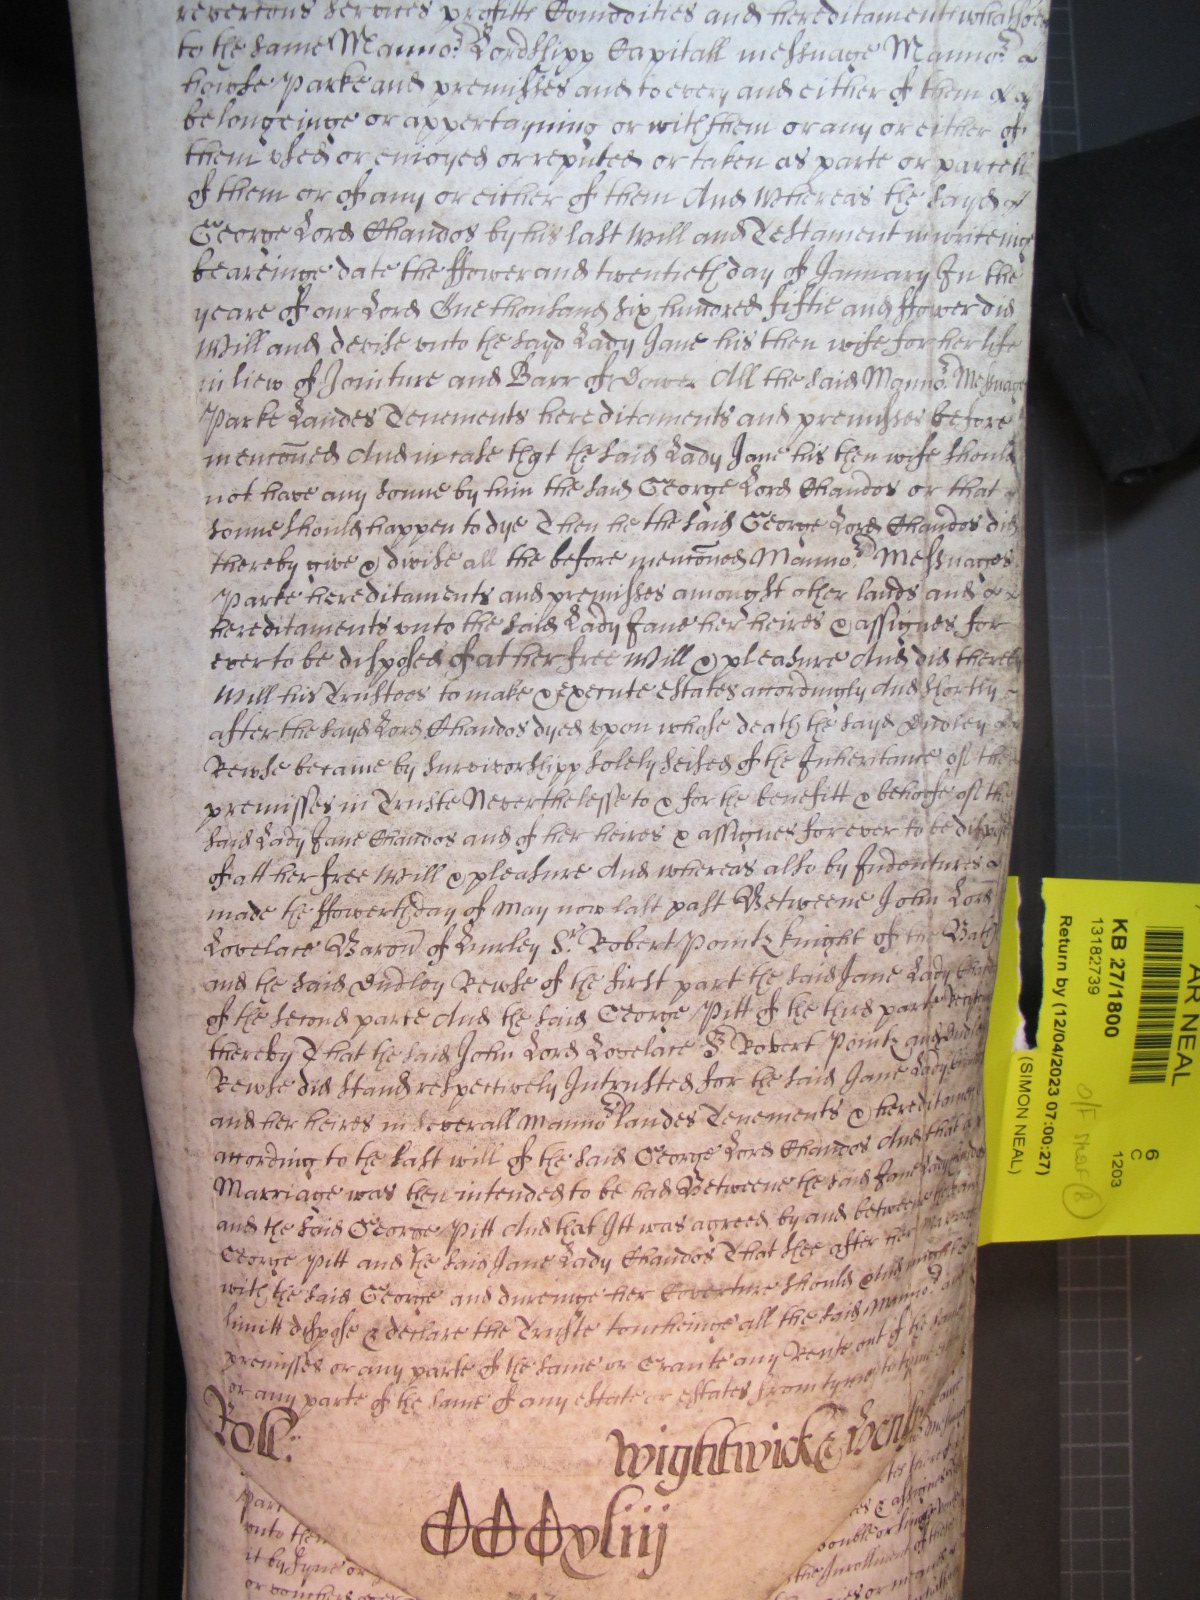 revercons Services profitts Comodities and hereditaments whatsoe
to the same Manno:r Lordshipp Capitall messuage Manno:r
howse Parke and premisses and to every and either of them
belongeinge or appertayning or with them or any or either of
them vsed or enioyed or reputed or taken as parte or parcell
of them or of any or either of them And Whereas the sayd
George Lord Chandos by his last Will and Testament in writeinge
beareinge date the ffower and twentieth day of January In the
yeare of our Lord One thousand six hundred fiftie and ffower did
Will and devise vnto the sayd Lady Jane his then wife for her life
in liew of Jointure and Barr of Dower All the said Manno:r Messuage
Parke Landes Tenements hereditaments and premisses before
menconed And in case that the said Lady Jane his then wife should
not have any sonne by him the said George Lord Chandos or that
sonne should happen to dye Then he the said George Lord Chandos did
thereby give & divise all the before menconed Manno:r Messuages
Parke hereditaments and premisses amongst other lands and
hereditaments vnto the said Lady Jane her heires & assignes for
ever to be disposed of at her free Will & pleasure And did thereby
Will his Trustees to make & execute estates accordingly And shortly
after the sayd Lord Chandos dyed vpon whose death the sayd Dudley
Rewse became by survivorshipp solely seised of the Inheritance of the
premisses in Truste Neverthelesse to & for the benefitt & behoofe of the
said Lady Jane Chandos and of her heires & assignes for ever to be dispose
of att her free Will & pleasure And whereas also by Indentures
made the ffowerth day of May now last past Betweene John Lord
Lovelace Baron of Hurley Sr. Robert Pointz knight of the Bath
and the said Dudley Rewse of the first part the said Jane Lady Chandos
of the second parte And the said George Pitt of the third parte Reciteing
thereby That the said John Lord Lovelace Sr. Robert Pointz and Dudley
Rewse did stand respectively Intrusted for the said Jane Lady Chandos
and her heires in severall Manno:rs landes Tenements & hereditaments
according to the last will of the said George Lord Chandos And that
Marriage was then intended to be had Betweene the said Jane Lady Chandos
and the said George Pitt And that Itt was agreed by and betweene the said
George Pitt and the said Jane Lady Chandos That shee after her Marriage
with the said George and dureinge her Coverture should And might
limitt dispose & declare the Truste toucheinge all the said Manno:rs and
premisses or any parte of the same or Graunte any Rente out of the same
or any parte of the same of any estate or estates from tyme to tyme
Roll:
Wightwick &
CCCxliij
part
vnto the
it by fyne or
or vouchers
the Inrollment of these
AR NEAL
KB 27/1800
13182739
Return by (12/04/2023 07:00:27)
(SIMON NEAL)
6
C
1203